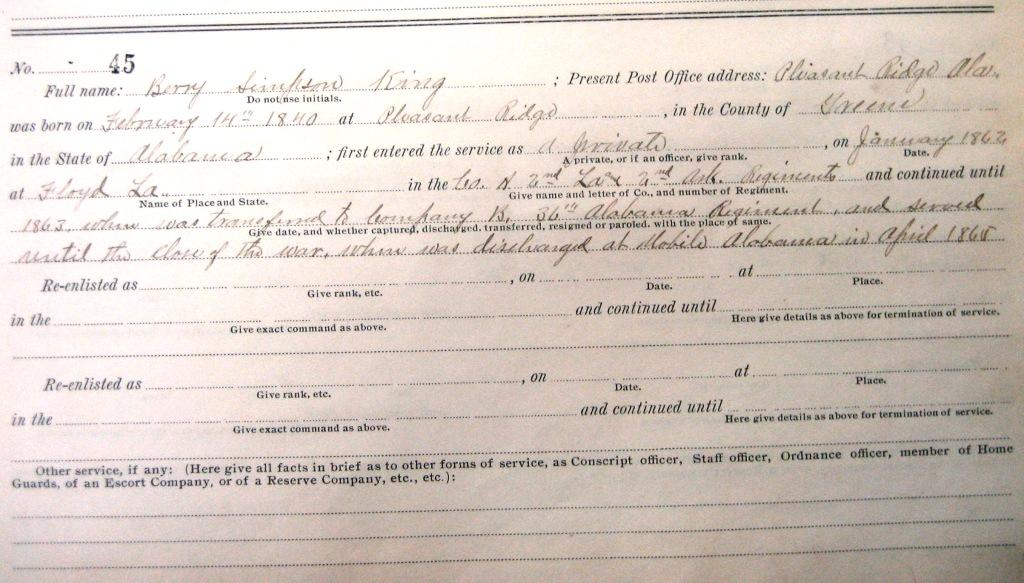 No. - 45
Full name: Berry Simpson King ; Present Post Office address: Pleasant Ridge Ala.
Do not use initials.
was born on February 14th 1840 at Pleasant Ridge , in the County of Greene
in the State of Alabama ; first entered the service as a private , on January 1862
A private, or if an officer, give rank. Date.
at Floyd La. in the Co. H 2nd La & 2nd Ark. Regiments and continued until
Name of Place and State. Give name and letter of Co., and number of Regiment.
1863, when was transfered to Company B, 36th Alabama Regiment, and served
Give date, and whether captured, discharged, transferred, resigned or paroled, with the place of same.
until the close of the war, when was discharged at Mobile Alabama in April 1865
Re-enlisted as , on at
Give rank, etc. Date. Place.
in the and continued until
Give exact command as above. Here give details as above for termination of service.
Re-enlisted as , on at
Give rank, etc. Date. Place.
in the and continued until
Give exact command as above. Here give details as above for termination of service.
Other service, if any: (Here give all facts in brief as to other forms of service, as Conscript officer, Staff officer, Ordnance officer, member of Home
Guards, of an Escort Company, or of a Reserve Company, etc., etc.):